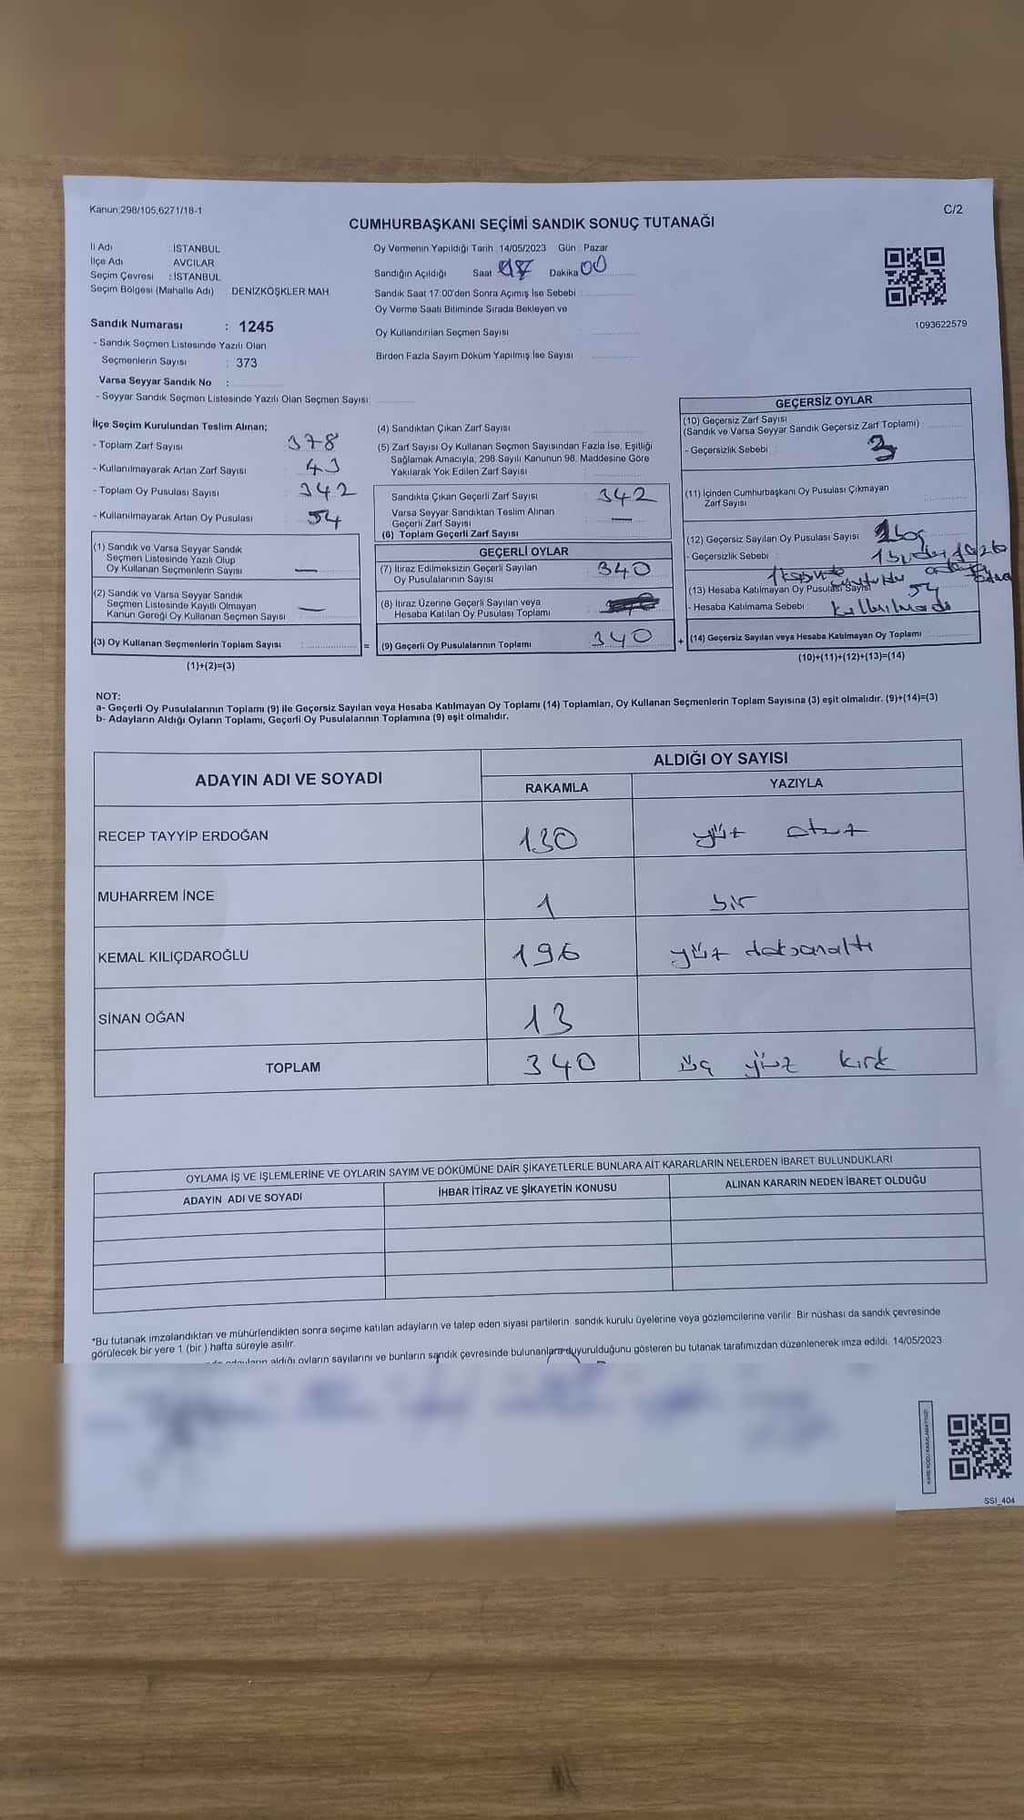 Kanun:298/105,6271/18-1
C/2
CUMHURBAŞKANI SEÇİMİ SANDIK SONUÇ TUTANAĞI
İl Adı : İSTANBUL
İlçe Adı : AVCILAR
Seçim Çevresi : İSTANBUL
Seçim Bölgesi (Mahalle Adı) : DENİZKÖŞKLER MAH.
Oy Vermenin Yapıldığı Tarih : 14/05/2023 Gün : Pazar
Sandığın Açıldığı Saat Dakika 00
Sandık Saat 17:00'den Sonra Açımış İse Sebebi :
Oy Verme Saati Bitiminde Sırada Bekleyen ve
Oy Kullandırılan Seçmen Sayısı :
Birden Fazla Sayım Döküm Yapılmış İse Sayısı :
1093622579
Sandık Numarası : 1245
- Sandık Seçmen Listesinde Yazılı Olan
Seçmenlerin Sayısı : 373
Varsa Seyyar Sandık No :
- Seyyar Sandık Seçmen Listesinde Yazılı Olan Seçmen Sayısı:
İlçe Seçim Kurulundan Teslim Alınan;
- Toplam Zarf Sayısı : 378
- Kullanılmayarak Artan Zarf Sayısı : 43
- Toplam Oy Pusulası Sayısı : 342
- Kullanılmayarak Artan Oy Pusulası : 54
(1) Sandık ve Varsa Seyyar Sandık
Seçmen Listesinde Yazılı Olup
Oy Kullanan Seçmenlerin Sayısı : —
(2) Sandık ve Varsa Seyyar Sandık
Seçmen Listesinde Kayıtlı Olmayan
Kanun Gereği Oy Kullanan Seçmen Sayısı : —
(3) Oy Kullanan Seçmenlerin Toplam Sayısı : =
(1)+(2)=(3)
(4) Sandıktan Çıkan Zarf Sayısı :
(5) Zarf Sayısı Oy Kullanan Seçmen Sayısından Fazla İse, Eşitliği
Sağlamak Amacıyla, 298 Sayılı Kanunun 98. Maddesine Göre
Yakılarak Yok Edilen Zarf Sayısı :
Sandıkta Çıkan Geçerli Zarf Sayısı : 342
Varsa Seyyar Sandıktan Teslim Alınan
Geçerli Zarf Sayısı : —
(6) Toplam Geçerli Zarf Sayısı :
GEÇERLİ OYLAR
(7) İtiraz Edilmeksizin Geçerli Sayılan
Oy Pusulalarının Sayısı : 340
(8) İtiraz Üzerine Geçerli Sayılan veya
Hesaba Katılan Oy Pusulası Toplamı :
(9) Geçerli Oy Pusulalarının Toplamı : 340 +
GEÇERSİZ OYLAR
(10) Geçersiz Zarf Sayısı
(Sandık ve Varsa Seyyar Sandık Geçersiz Zarf Toplamı) :
- Geçersizlik Sebebi : 3
(11) İçinden Cumhurbaşkanı Oy Pusulası Çıkmayan
Zarf Sayısı :
(12) Geçersiz Sayılan Oy Pusulası Sayısı : boş
- Geçersizlik Sebebi :
(13) Hesaba Katılmayan Oy Pusulası Sayısı : 54
- Hesaba Katılmama Sebebi : kullanılmadı
(14) Geçersiz Sayılan veya Hesaba Katılmayan Oy Toplamı :
(10)+(11)+(12)+(13)=(14)
NOT:
a- Geçerli Oy Pusulalarının Toplamı (9) ile Geçersiz Sayılan veya Hesaba Katılmayan Oy Toplamı (14) Toplamları, Oy Kullanan Seçmenlerin Toplam Sayısına (3) eşit olmalıdır. (9)+(14)=(3)
b- Adayların Aldığı Oyların Toplamı, Geçerli Oy Pusulalarının Toplamına (9) eşit olmalıdır.
ADAYIN ADI VE SOYADI
ALDIĞI OY SAYISI
RAKAMLA YAZIYLA
RECEP TAYYİP ERDOĞAN 130 yüz otuz
MUHARREM İNCE 1 bir
KEMAL KILIÇDAROĞLU 196 yüz doksanaltı
SİNAN OĞAN 13
TOPLAM 340 üç yüz kırk
OYLAMA İŞ VE İŞLEMLERİNE VE OYLARIN SAYIM VE DÖKÜMÜNE DAİR ŞİKAYETLERLE BUNLARA AİT KARARLARIN NELERDEN İBARET BULUNDUKLARI
ADAYIN ADI VE SOYADI İHBAR İTİRAZ VE ŞİKAYETİN KONUSU ALINAN KARARIN NEDEN İBARET OLDUĞU
*Bu tutanak imzalandıktan ve mühürlendikten sonra seçime katılan adayların ve talep eden siyasi partilerin sandık kurulu üyelerine veya gözlemcilerine verilir. Bir nüshası da sandık çevresinde
görülecek bir yere 1 (bir ) hafta süreyle asılır.
aldığı oyların sayılarını ve bunların sandık çevresinde bulunanlara duyurulduğunu gösteren bu tutanak tarafımızdan düzenlenerek imza edildi. 14/05/2023
SSI_404